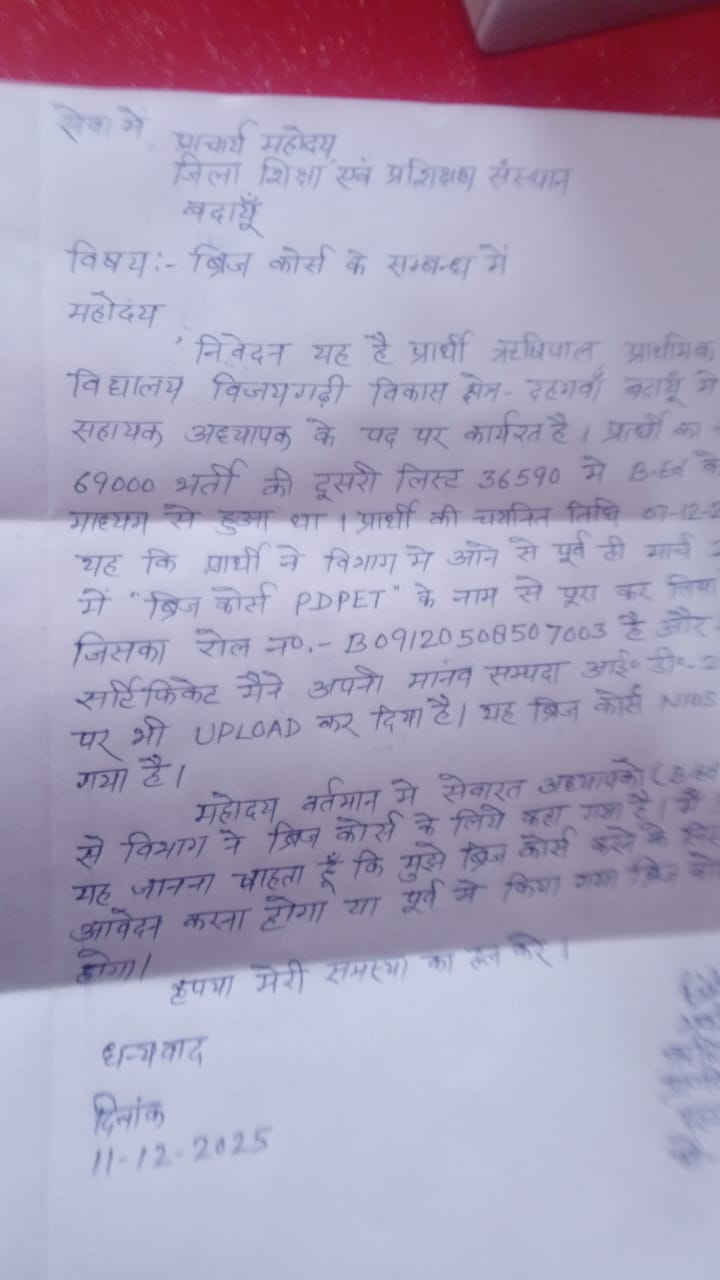 सेवा में,
प्राचार्य महोदय,
जिला शिक्षा एवं प्रशिक्षण संस्थान
बदायूँ
विषय:- ब्रिज कोर्स के सम्बन्ध में
महोदय,
निवेदन यह है प्रार्थी ऋषिपाल प्राथमिक
विद्यालय विजयगढ़ी विकास क्षेत्र- दहगवाँ बदायूँ मे
सहायक अध्यापक के पद पर कार्यरत है। प्रार्थी का
69000 भर्ती की दूसरी लिस्ट 36590 मे B.Ed के
माध्यम से हुआ था। प्रार्थी की चयनित तिथि 07-12-2
यह कि प्रार्थी ने विभाग मे आने से पूर्व ही मार्च
में "ब्रिज कोर्स PDPET" के नाम से पूरा कर लिया
जिसका रोल न०.- B09120508507003 है और
सर्टिफिकेट मैने अपनी मानव सम्पदा आई० डी०- 2
पर भी UPLOAD कर दिया है। यह ब्रिज कोर्स NIOS
गया है।
महोदय वर्तमान मे सेवारत अध्यापको (B.Ed
से विभाग ने ब्रिज कोर्स के लिये कहा गया है। मै
यह जानना चाहता हूँ कि मुझे ब्रिज कोर्स करने के लिए
आवेदन करना होगा या पूर्व मे किया गया ब्रिज को
होगा।
कृपया मेरी समस्या का हल करे।
धन्यवाद
दिनांक
11-12-2025